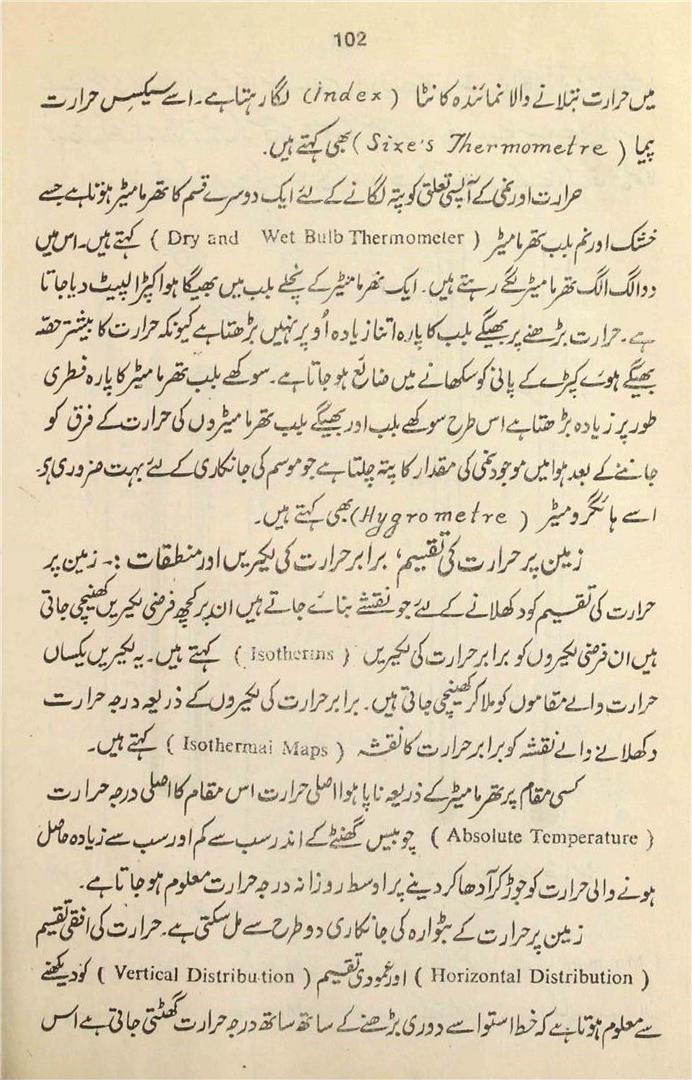 102
میں حرارت بتلانے والا نمائندہ کانٹا ( index ) لگا رہتا ہے۔ اسے سیکسِس حرارت
پیما ( Sixe's Thermometre ) بھی کہتے ہیں۔
حرارت اور نمی کے آپسی تعلق کو پتہ لگانے کے لئے ایک دوسرے قسم کا تھرمامیٹر ہوتا ہے جسے
خشک اور نم بلب تھرمامیٹر ( Dry and Wet Bulb Thermometer ) کہتے ہیں۔ اس میں
دو الگ الگ تھرمامیٹر لگے رہتے ہیں۔ ایک تھرمامیٹر کے نچلے بلب میں بھیگا ہوا کپڑا لپیٹ دیا جاتا
ہے۔ حرارت بڑھنے پر بھیگے بلب کا پارہ اتنا زیادہ اُوپر نہیں بڑھتا ہے کیونکہ حرارت کا بیشتر حصّہ
بھیگے ہوئے کپڑے کے پانی کو سکھانے میں ضائع ہو جاتا ہے۔ سوکھے بلب تھرمامیٹر کا پارہ فطری
طور پر زیادہ بڑھتا ہے اس طرح سوکھے بلب اور بھیگے بلب تھرمامیٹروں کی حرارت کے فرق کو
جاننے کے بعد ہوا میں موجود نمی کی مقدار کا پتہ چلتا ہے جو موسم کی جانکاری کے لئے بہت ضروری ہے۔
اسے ہائگرومیٹر ( Hygrometre ) بھی کہتے ہیں۔
زمین پر حرارت کی تقسیم، برابر حرارت کی لکیریں اور منطقات :۔ زمین پر
حرارت کی تقسیم کو دکھلانے کے لئے جو نقشے بنائے جاتے ہیں ان پر کچھ فرضی لکیریں کھینچی جاتی
ہیں ان فرضی لکیروں کو برابر حرارت کی لکیریں ( Isotherms ) کہتے ہیں۔ یہ لکیریں یکساں
حرارت والے مقاموں کو ملا کر کھینچی جاتی ہیں۔ برابر حرارت کی لکیروں کے ذریعہ درجہ حرارت
دکھلانے والے نقشہ کو برابر حرارت کا نقشہ ( Isothermal Maps ) کہتے ہیں۔
کسی مقام پر تھرمامیٹر کے ذریعہ ناپا ہوا اصلی حرارت اس مقام کا اصلی درجہ حرارت
( Absolute Temperature ) چوبیس گھنٹے کے اندر سب سے کم اور سب سے زیادہ حاصل
ہونے والی حرارت کو جوڑ کر آدھا کر دینے پر اوسط روزانہ درجہ حرارت معلوم ہو جاتا ہے۔
زمین پر حرارت کے بٹوارہ کی جانکاری دو طرح سے مل سکتی ہے۔ حرارت کی افقی تقسیم
( Horizontal Distribution ) اور عمودی تقسیم ( Vertical Distribution ) کو دیکھنے
سے معلوم ہوتا ہے کہ خط استوا سے دوری بڑھنے کے ساتھ ساتھ درجہ حرارت گھٹتی جاتی ہے اس